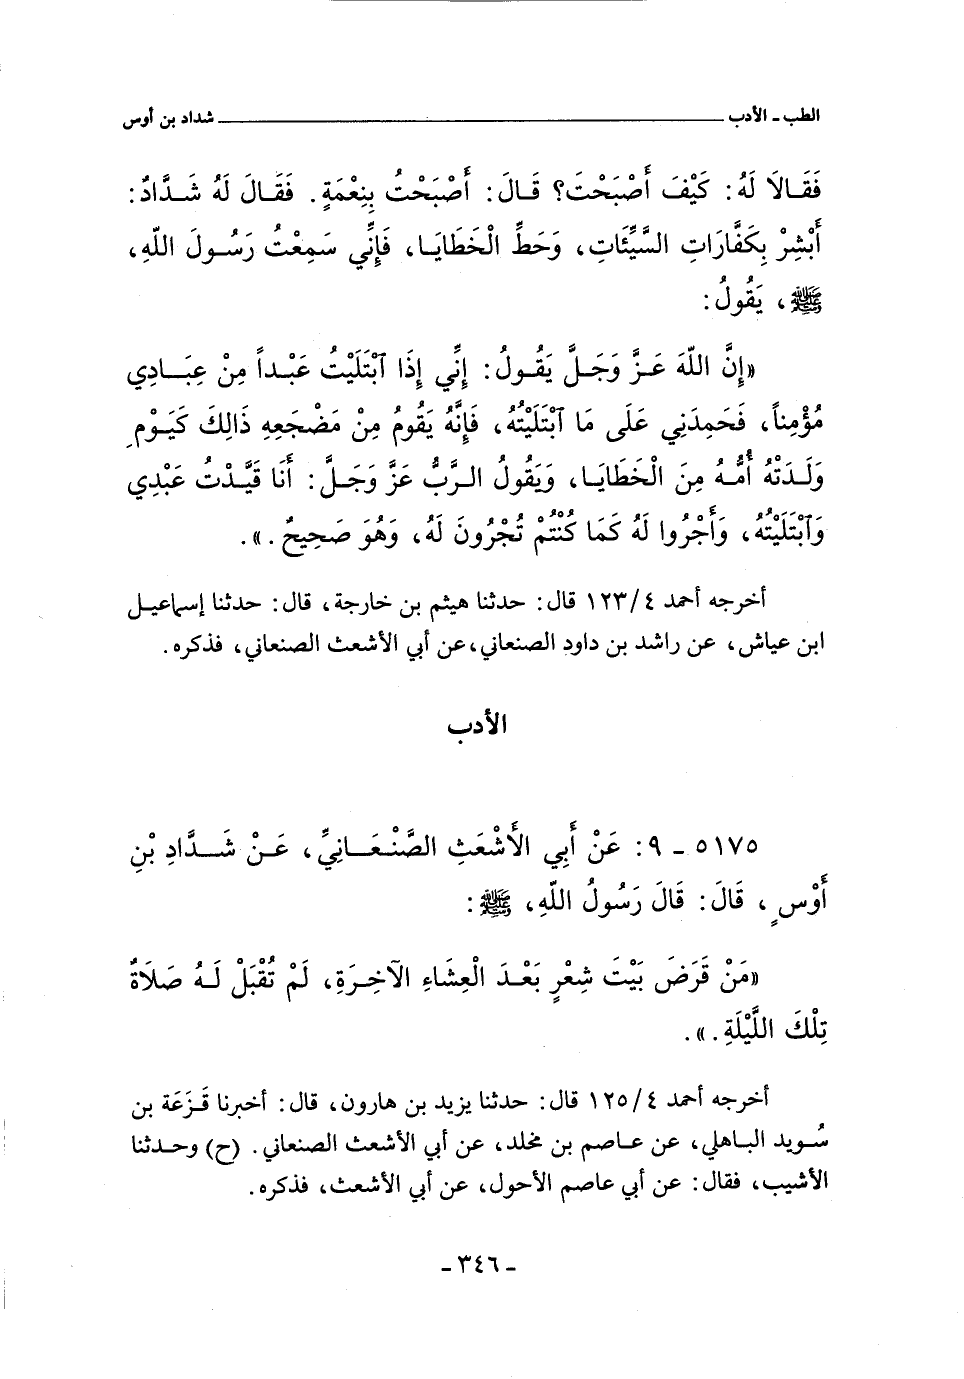 الطب - الأدب ــــــــــــــ شداد بن أوس
فَقَالَا لَهُ: كَيْفَ أَصْبَحْتَ؟ قَالَ: أَصْبَحْتُ بِنِعْمَةٍ. فَقَالَ لَهُ شَدَّادٌ:
أَبْشِرْ بِكَفَّارَاتِ السَّيِّئَاتِ، وَحَطِّ الْخَطَايَا، فَإِنِّي سَمِعْتُ رَسُولَ اللّهِ،
ﷺ، يَقُولُ:
«إِنَّ اللّهَ عَزَّ وَجَلَّ يَقُولُ: إِنِّي إِذَا ٱبْتَلَيْتُ عَبْداً مِنْ عِبَادِي
مُؤْمِناً، فَحَمِدَنِي عَلَى مَا ٱبْتَلَيْتُهُ، فَإِنَّهُ يَقُومُ مِنْ مَضْجَعِهِ ذَالِكَ كَيَوْمِ
وَلَدَتْهُ أُمُّهُ مِنَ الْخَطَايَا، وَيَقُولُ الرَّبُّ عَزَّ وَجَلَّ: أَنَا قَيَّدْتُ عَبْدِي
وَٱبْتَلَيْتُهُ، وَأَجْرُوا لَهُ كَمَا كُنْتُمْ تُجْرُونَ لَهُ، وَهُوَ صَحِيحٌ.».
أخرجه أحمد ١٢٣/٤ قال: حدثنا هيثم بن خارجة، قال: حدثنا إسماعيل
ابن عياش، عن راشد بن داود الصنعاني، عن أبي الأشعث الصنعاني، فذكره.
الأدب
٥١٧٥ - ٩: عَنْ أَبِي الأَشْعَثِ الصَّنْعَانِيِّ، عَنْ شَدَّادِ بْنِ
أَوْسٍ، قَالَ: قَالَ رَسُولُ اللّهِ، ﷺ:
«مَنْ قَرَضَ بَيْتَ شِعْرٍ بَعْدَ الْعِشَاءِ الآخِرَةِ، لَمْ تُقْبَلْ لَهُ صَلَاةٌ
تِلْكَ اللَّيْلَةِ.».
أخرجه أحمد ١٢٥/٤ قال: حدثنا يزيد بن هارون، قال: أخبرنا قَزَعَة بن
سُويد الباهلي، عن عاصم بن مخلد، عن أبي الأشعث الصنعاني. (ح) وحدثنا
الأشيب، فقال: عن أبي عاصم الأحول، عن أبي الأشعث، فذكره.
- ٣٤٦ -